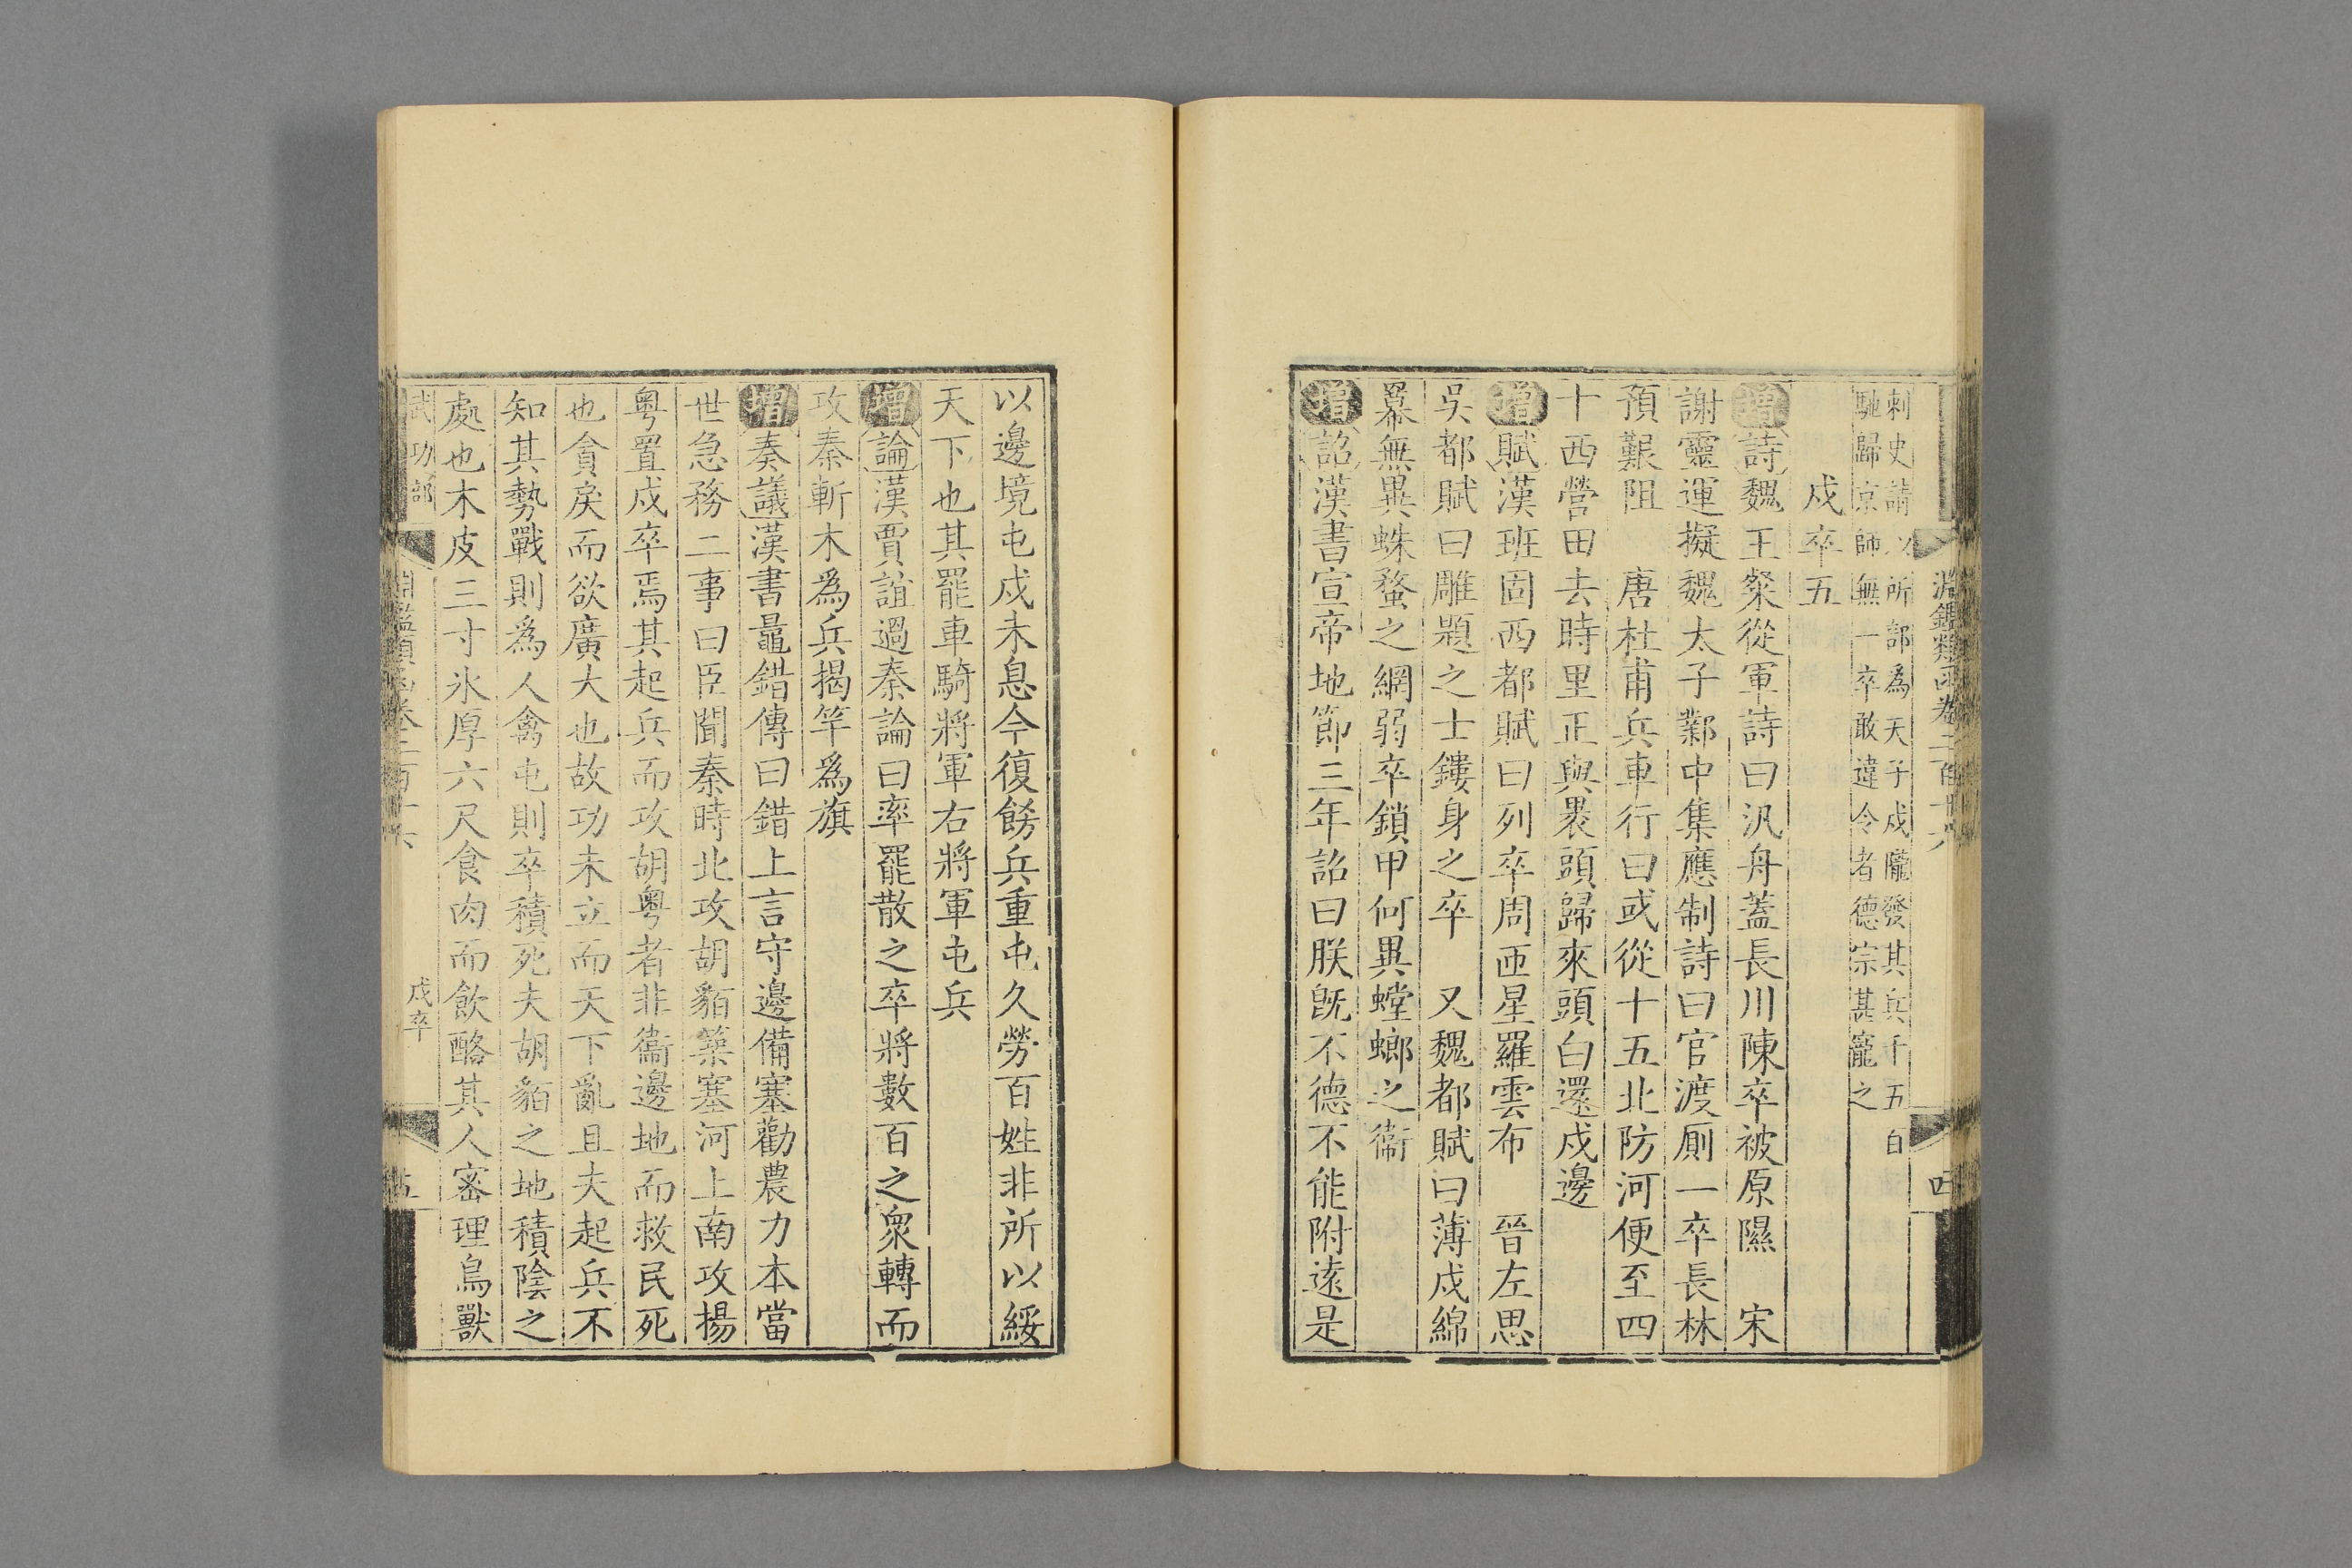 淵鑑類函卷二百十六
四
刺史請以所部為天子戍隴發其兵千五百
馳歸京師無一卒敢違令者德宗甚寵之
戍卒五
增詩魏王粲從軍詩曰汎舟蓋長川陳卒被原隰　宋
謝靈運擬魏太子鄴中集應制詩曰官渡厠一卒長林
預艱阻　唐杜甫兵車行曰或從十五北防河便至四
十西營田去時里正與裹頭歸來頭白還戍邊
增賦漢班固西都賦曰列卒周匝星羅雲布　晉左思
吳都賦曰雕題之士鏤身之卒　又魏都賦曰薄戍綿
冪無異蛛蝥之網弱卒鎖甲何異螳螂之衞
增詔漢書宣帝地節三年詔曰朕旣不德不能附遠是
以邊境屯戍未息今復餝兵重屯久勞百姓非所以綏
天下也其罷車騎將軍右將軍屯兵
增論漢賈誼過秦論曰率罷散之卒將數百之衆轉而
攻秦斬木爲兵揭竿爲旗
增奏議漢書鼂錯傳曰錯上言守邊備塞勸農力本當
世急務二事曰臣聞秦時北攻胡貉築塞河上南攻揚
粵置戍卒焉其起兵而攻胡粵者非衞邊地而救民死
也貪戾而欲廣大也故功未立而天下亂且夫起兵不
知其勢戰則爲人禽屯則卒積死夫胡貉之地積陰之
處也木皮三寸氷厚六尺食肉而飲酪其人密理鳥獸
武功部
淵鑑類函卷二百十六
戍卒
五